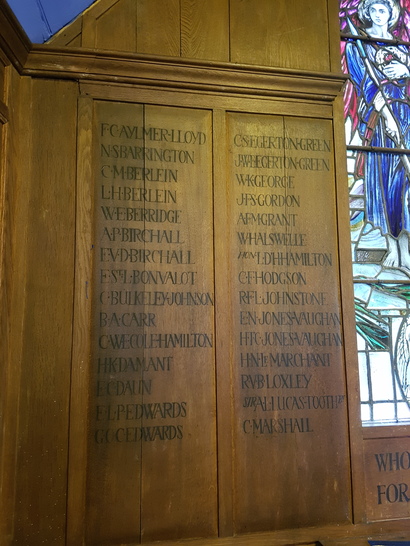 F·C·AYLMER·LLOYD
N·S·BARRINGTON
C·M·BERLEIN
L·H·BERLEIN
W·E·BERRIDGE
A·P·BIRCHALL
E·V·D·BIRCHALL
E·Sᵗ L·BONVALOT
C·BULKELEY-JOHNSON
B·A·CARR
C·W·E·COLE-HAMILTON
H·K·DAMANT
E·C·DAUN
E·L·P·EDWARDS
G·O·C·EDWARDS
C·S·EGERTON-GREEN
J·W·EGERTON-GREEN
W·K·GEORGE
J·F·S·GORDON
A·F·M·GRANT
W·HALSWELLE
HON L·D'H·HAMILTON
C·F·HODGSON
R·F·L·JOHNSTONE
E·N·JONES-VAUGHAN
H·T·C·JONES-VAUGHAN
H·N·LE MARCHANT
R·V·B·LOXLEY
SIR A·L·LUCAS-TOOTH
C·MARSHALL
WHO
FOR